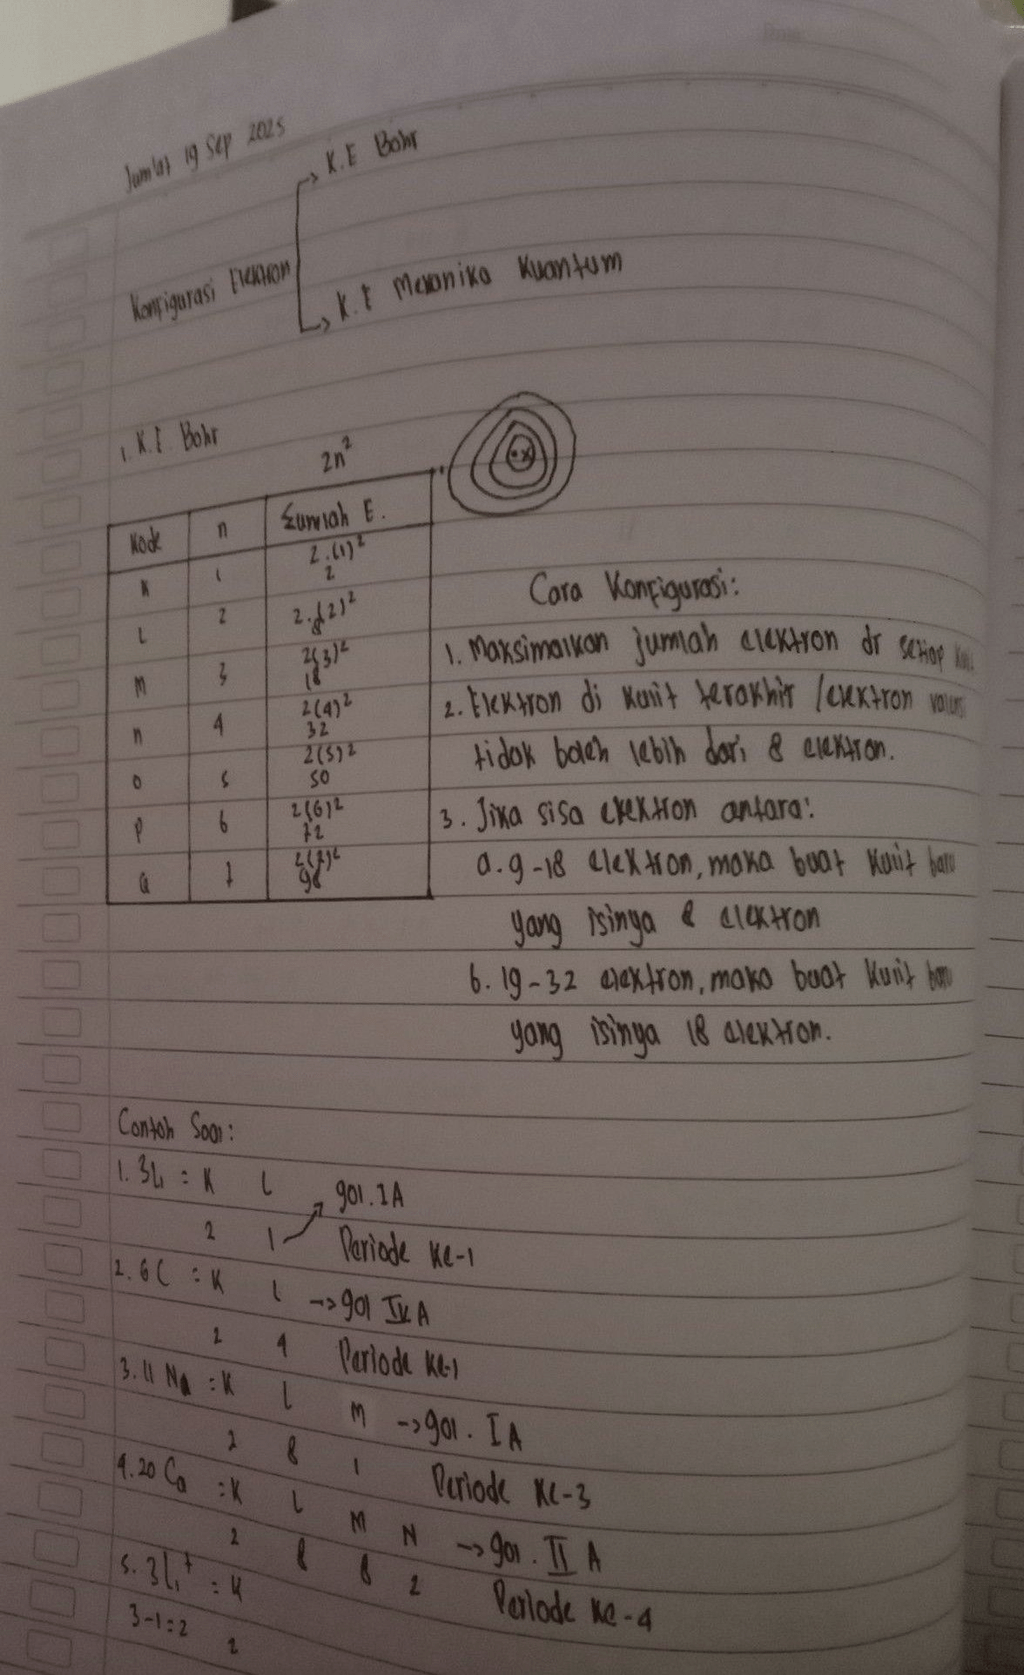 Jum'at 19 Sep 2025
K.E Bohr
Konfigurasi Elektron
K.E Mekanika Kuantum
1. K.E. Bohr
2n²
Kode n Jumlah E.
K 1 2.(1)²
2
L 2 2.(2)²
8
M 3 2(3)²
18
n 4 2(4)²
32
O 5 2(5)²
50
P 6 2(6)²
72
Q 7 2(7)²
98
Cara Konfigurasi:
1. Maksimalkan jumlah elektron dr setiap
2. Elektron di kulit terakhir /elektron
tidak boleh lebih dari 8 elektron.
3. Jika sisa elektron antara:
a. 9-18 elektron, maka buat kulit baru
yang isinya 8 elektron
b. 19-32 elektron, maka buat kulit baru
yang isinya 18 elektron.
Contoh Soal:
1. 3Li = K L gol. IA
2 1 Periode ke-1
2. 6C = K L -> gol IVA
2 4 Periode ke-1
3. 11 Na = K L M -> gol. IA
2 8 1 Periode ke-3
4. 20 Ca = K L M N -> gol. II A
2 8 8 2 Periode ke-4
5. 3Li⁺ = K
3-1=2 2